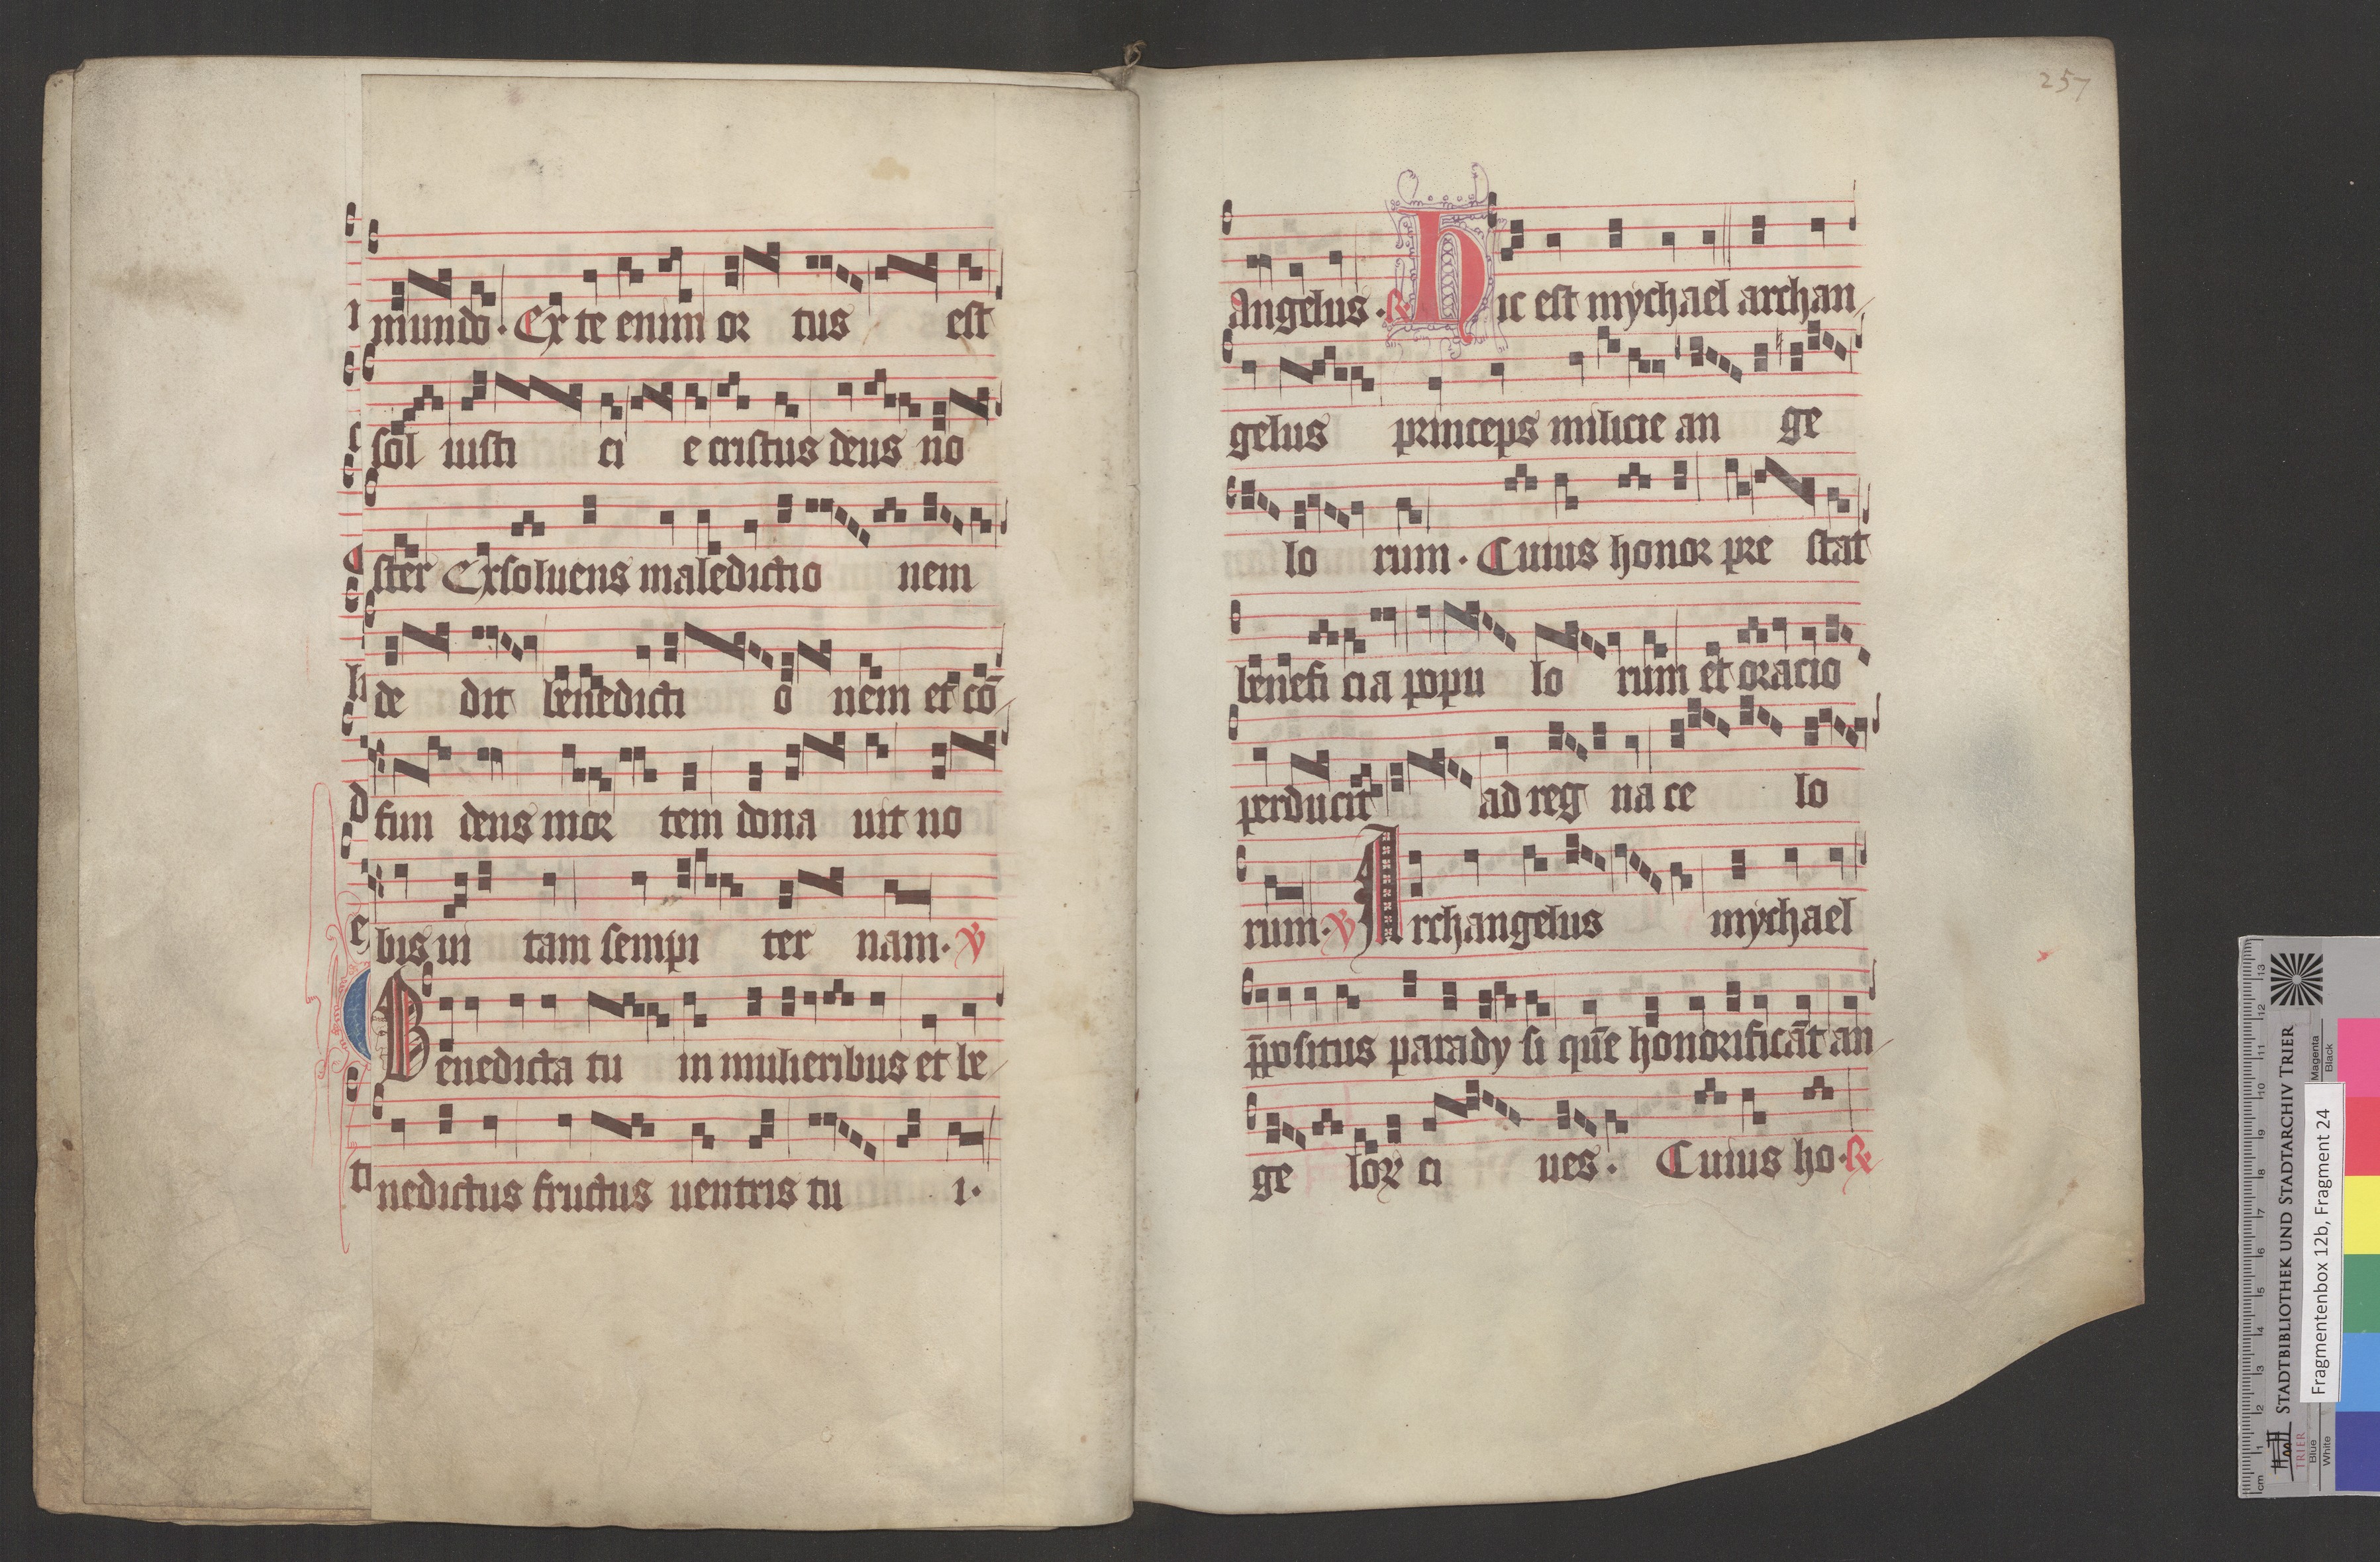 mundo. Ex te enim or tus est
sol iusti ci e cristus deus no
ster Exsoluens maledictio nem
de dit benedicti o nem et cō
fun dens mor tem dona uit no
bis ui tam sempi ter nam. ℣
Benedicta tu in mulieribus et be
nedictus fructus uentris tu i.
257
Angelus. ℟ Hic est mychael archan
gelus princeps milicie an ge
lo rum. Cuius honor pre stat
benefi cia popu lo rum et oracio
perducit ad reg na ce lo
rum. ℣ Archangelus mychael
p̄positus parady si quē honorificāt an
ge loꝝ ci ues. Cuius ho. ℟
STADTBIBLIOTHEK UND STADTARCHIV TRIER
TRIER
Fragmentenbox 12b, Fragment 24
Magenta
Black
Blue
White
cm 1 2 3 4 5 6 7 8 9 10 11 12 13